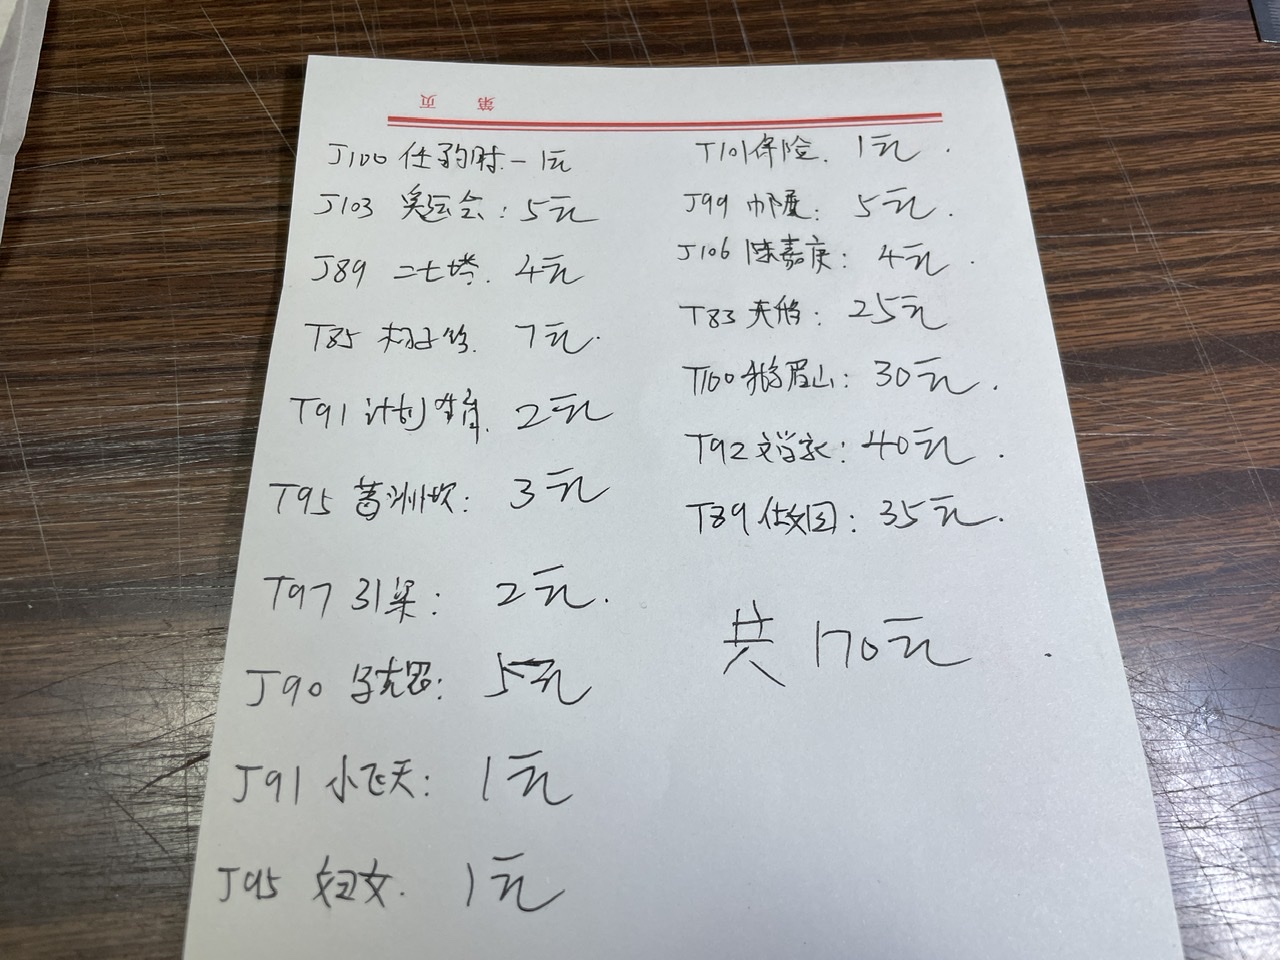 第 页
J100 任弼时 - 1元
J103 奥运会: 5元
J89 二七塔. 4元
T85 木子令. 7元.
T91 计划生育. 2元
T95 葛洲坝: 3元
T97 引滦: 2元.
J90 马克思: 5元
J91 小飞天: 1元
J95 妇女. 1元
T101 保险. 1元.
J99 中厦: 5元.
J106 陈嘉庚: 4元.
T83 天鹅: 25元
T100 峨眉山: 30元.
T92 文学家: 40元.
T89 仕女图: 35元.
共 170元.